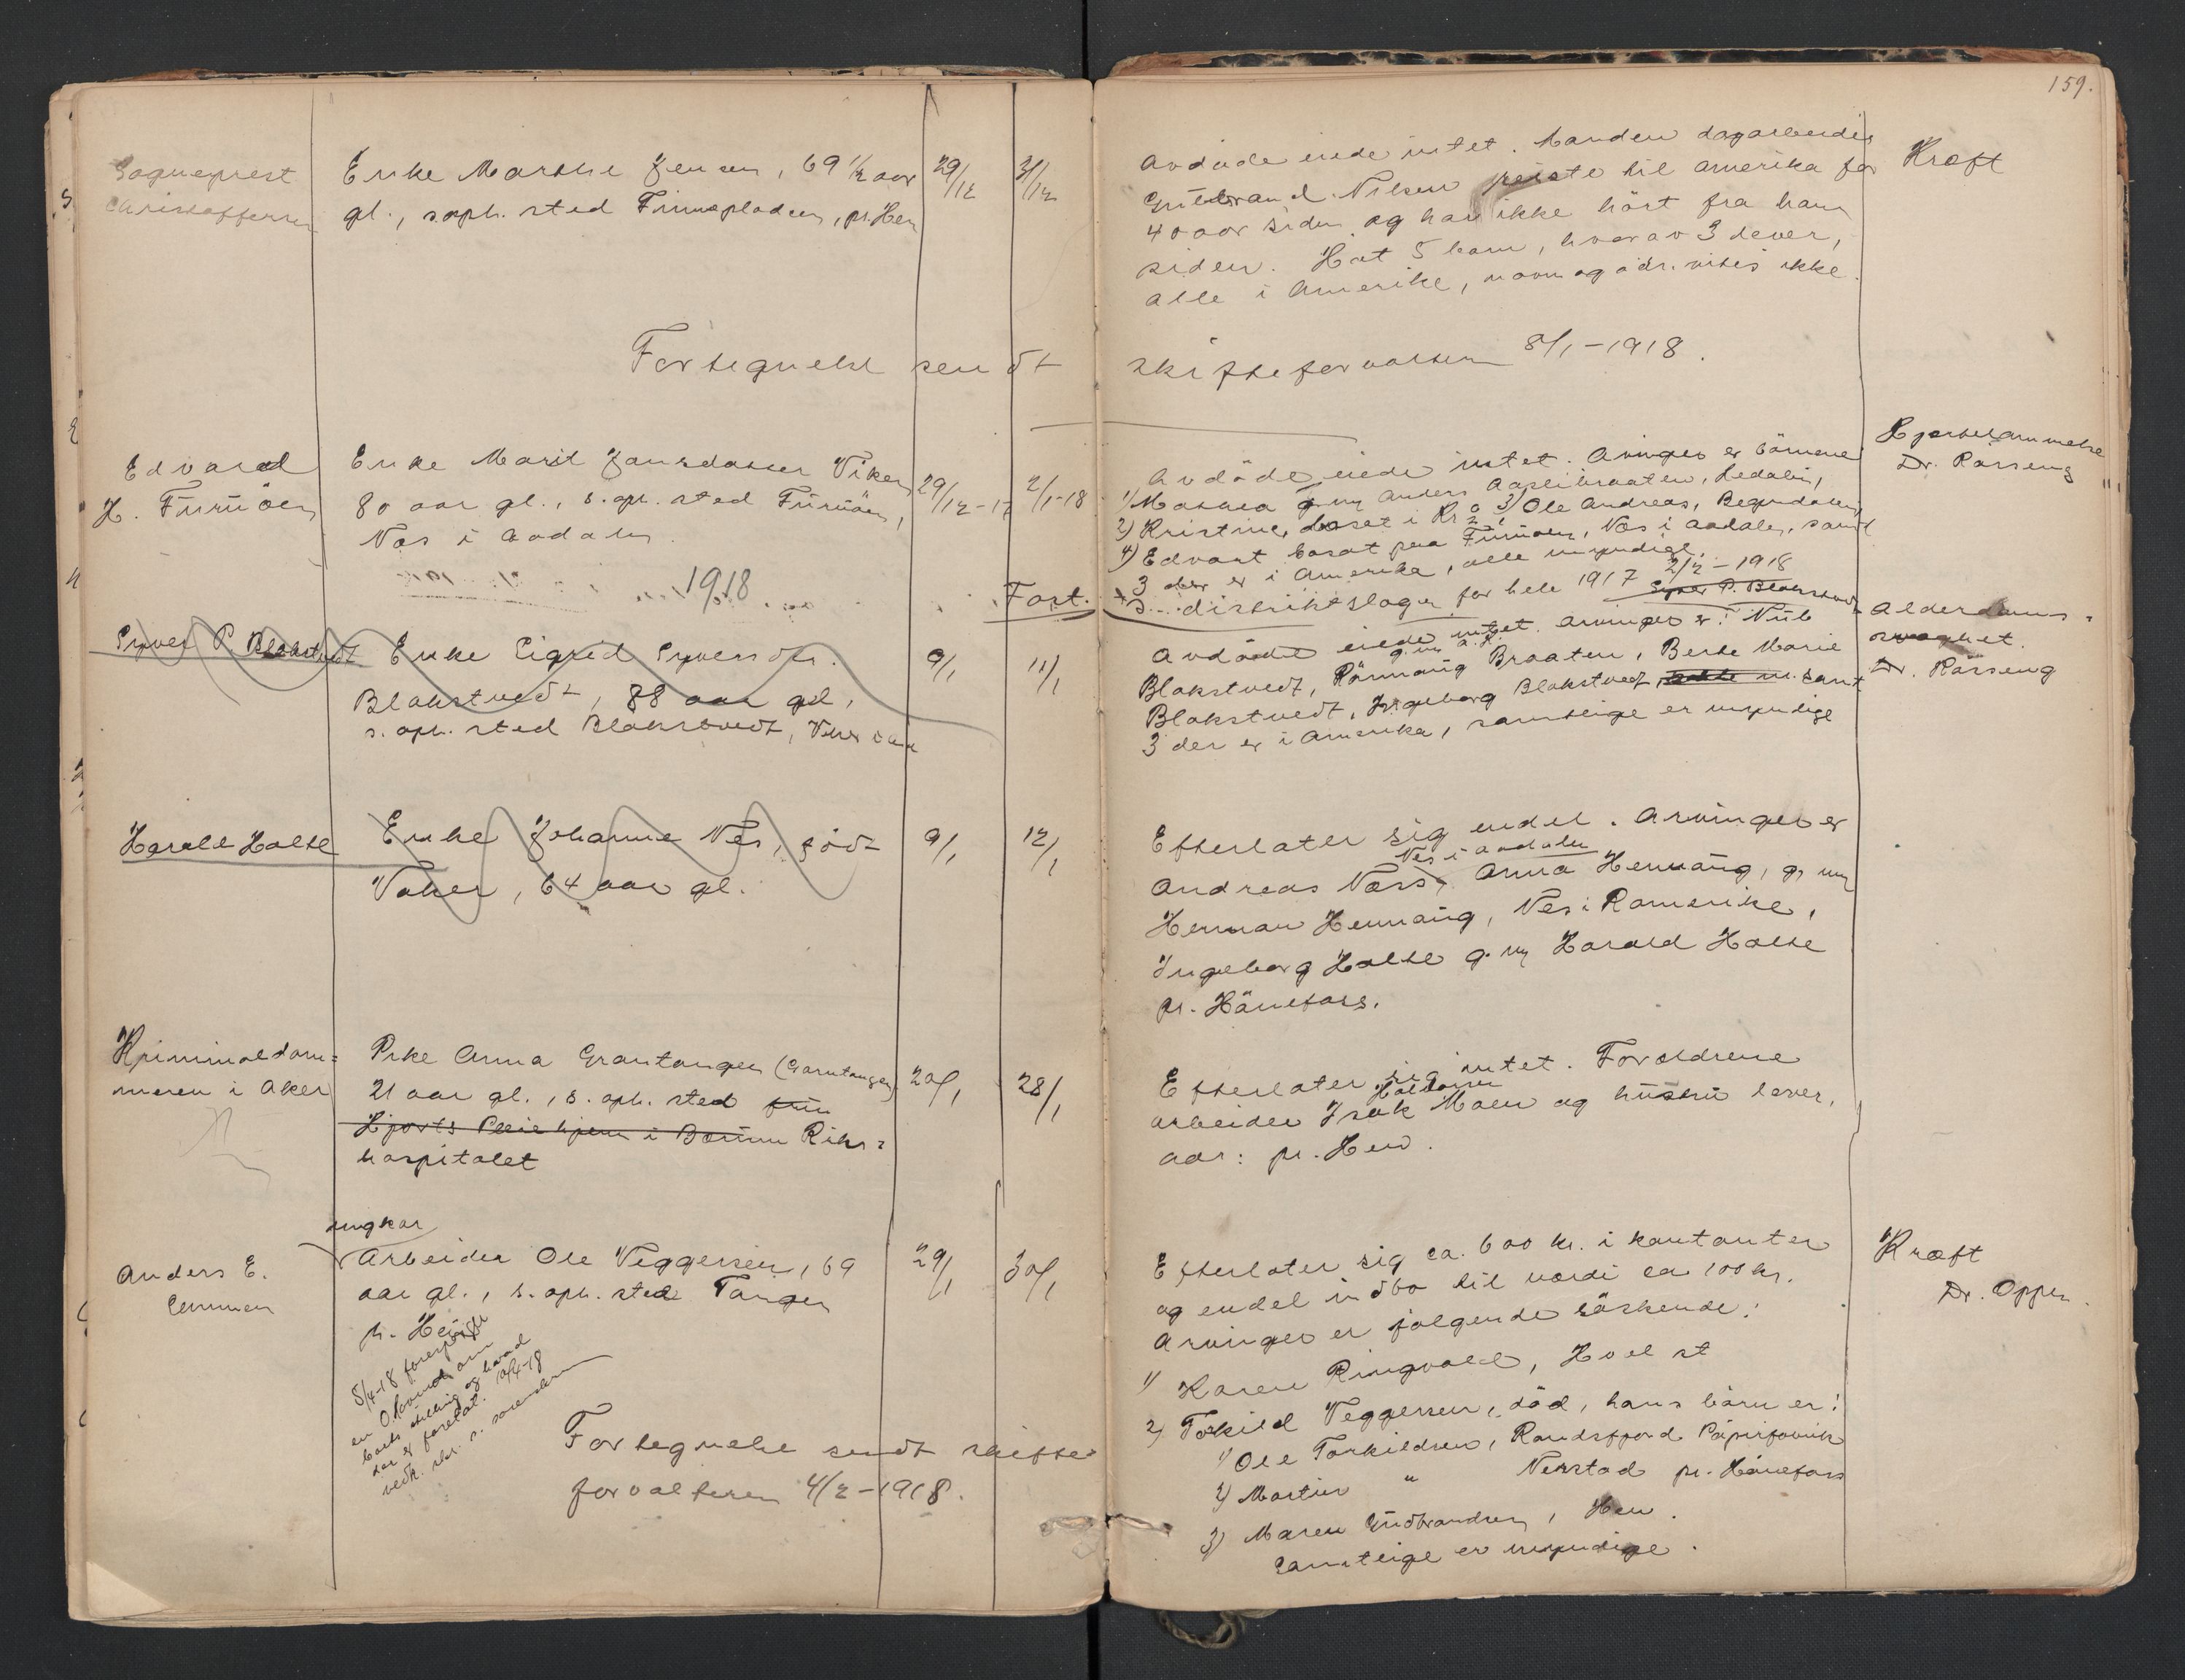 159.
Sogneprest
Christoffersen
Enke Marthe Jensen, 69 ½ aar
gl., s. oph. sted Finnepladsen, pr. Hen
29/12
31/12
Avdøde eiede intet. Manden dagarbeider
Gudbrand Nilsen reiste til Amerika for
40 aar siden og har ikke hört fra ham
siden. Hat 5 barn, hvorav 3 lever,
alle i Amerika, navn og adr. vites ikke.
Kræft
Fortegnelse sendt skifteforvalteren 8/1-1918.
Edvard
H. Furuöen
Enke Marit Jansdatter Viken
80 aar gl., s. oph. sted Furuöen,
Nes i Aadalen
29/12-17
2/1-18
Avdøde eiede intet. Arvinger er börnene
1) Mathea g. m. Anders Aaslibraaten, Sedalen,
2) Kristine, bosat i Kr.a 3) Ole Andreas, Begndalen,
4) Edvart bosat paa Furuöen, Nes i Aadalen, samt
3 der er i Amerika, alle myndige.
Hjertelammelse
Dr. Rosseng
1918
Fort.
distriktslæge for hele 1917 2/2-1918
Syver P. Blakstvedt
Syver P. Blakstvedt
Enke Sigrid Syversdtr.
Blakstvedt, 88 aar gl,
s. oph. sted Blakstvedt,
9/1
11/1
Avdøde eiede intet. Arvinger er: Nub
g. m. A. K.
Blakstvedt, Rönnaug Braaten, Berte Marie
Blakstvedt, Ingeborg Blakstvedt, samt
3 der er i Amerika, samtlige er myndige
Alderdoms-
svaghet.
Dr. Rosseng
Harald Holte
Enke Johanne Nes, födt
Vaker, 64 aar gl.
9/1
12/1
Efterlater sig endel. Arvinger er
Nes i Aadalen
Andreas Næss, Anna Hennaug, g. m.
Herman Hennaug, Nes i Romerike,
Ingeborg Holte g. m. Harald Holte
pr. Hönefoss.
Kriminaldom=
meren i Aker
Pike Anna Grantangen (Garntangen)
21 aar gl., s. oph. sted fru
Hjorts Pleiehjem i Bærum Riks=
hospitalet
20/1
28/1
Efterlater sig intet. Forældrene
Halvorsen
arbeider Isak Moen og hustru lever,
adr: pr. Hen.
Anders E.
Semmen
ungkar
Arbeider Ole Veggersen, 69
aar gl., s. oph. sted Tangen
p. Hen
29/1
30/1
5/4-18 forespurt
en O. Lovund om
boets stilling og hvad
der er foretat. 10/4-18
vedk. skr. s. sorenskr.
Efterlater sig ca. 600 kr. i kontanter
og endel indbo til værdi ca 100 kr.
Arvinger er følgende söskende:
1) Karen Ringvold, Hval st
2) Torkild Veggersen, död, hans börn er:
1) Ole Torkildsen, Randsfjord Papirfabrik
2) Martin " Nerstad pr. Hönefoss
3) Maren Gudbrandsen, Hen.
Samtlige er myndige.
Kræft
Dr. Oppen.
Fortegnelse sendt skifte
forvalteren 4/2-1918.